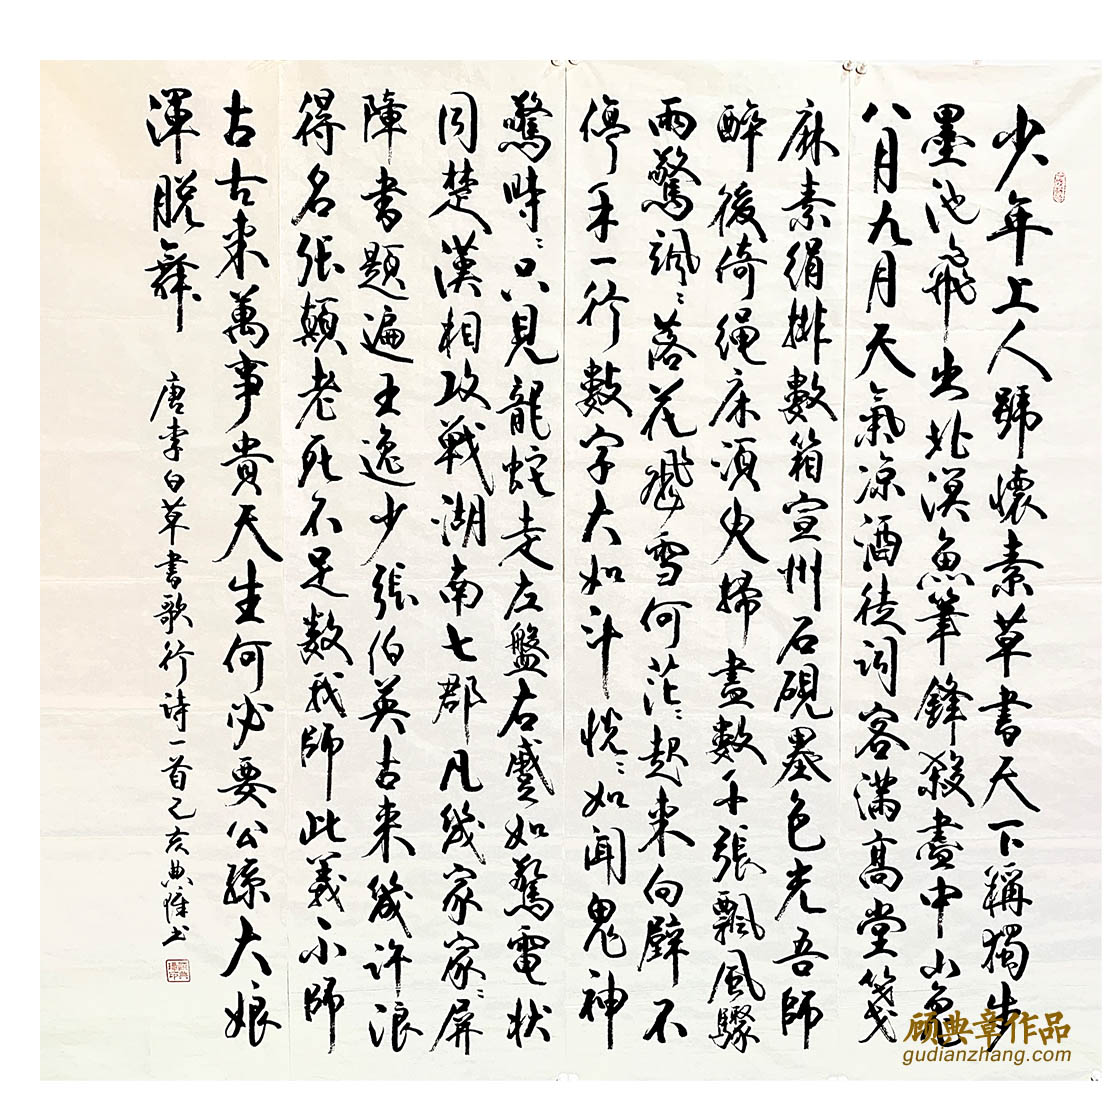 少年上人號懷素草書天下稱獨步
墨池飛出北溟魚筆鋒殺盡中山兔
八月九月天氣凉酒徒詞客滿高堂箋
麻素絹排數箱宣州石硯墨色光吾師
醉後倚繩床須臾掃盡數千張飄風驟
雨驚颯〻落花飛雪何茫〻起來向壁不
停手一行數字大如斗恍〻如聞鬼神
驚時〻只見龍蛇走左盤右蹙如驚電狀
同楚漢相攻戰湖南七郡凡幾家家〻屏
障書題遍王逸少張伯英古來幾許浪
得名張顛老死不足數我師此義不師
古古來萬事貴天生何必要公孫大娘
渾脫舞
唐李白草書歌行诗一首己亥典璋书
顾典章作品
gudianzhang.com